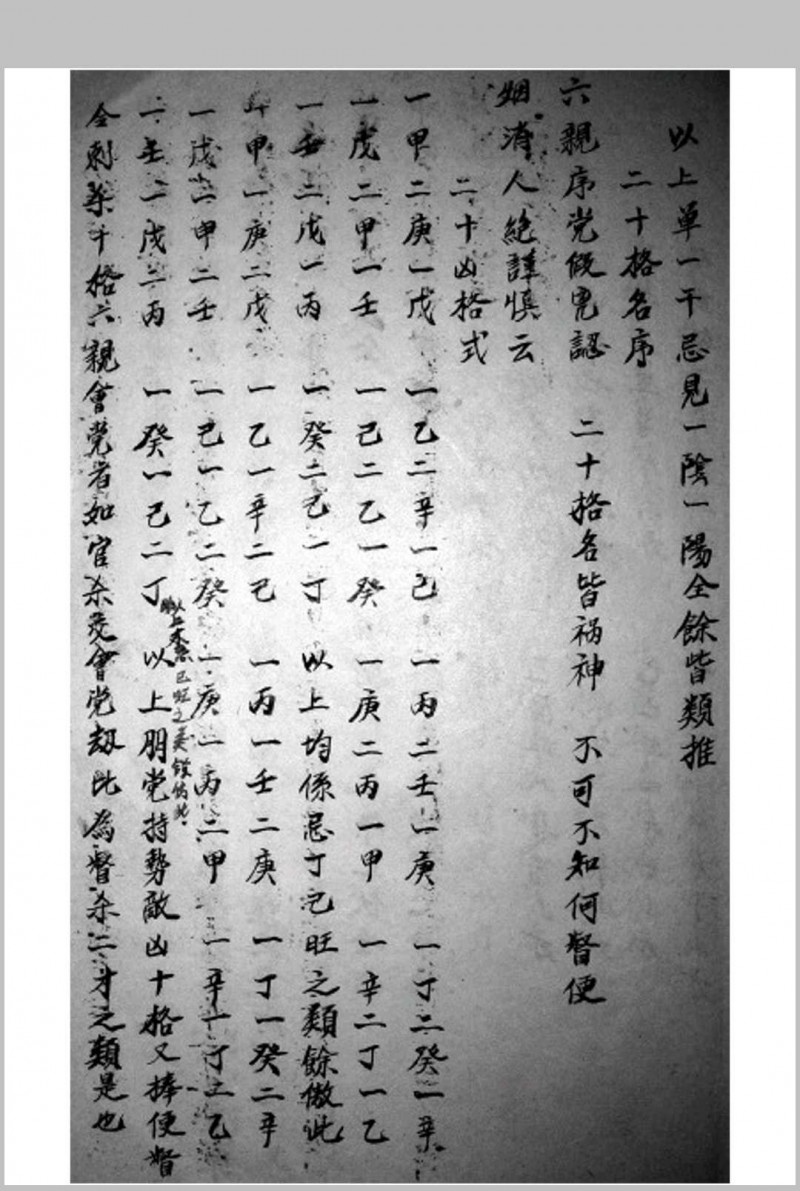 以上单一干忌見一陰一陽全餘皆類推
二十格名序
六親序党假鬼認 二十格名皆祸神 不可不知何督便
烟消人絕謹慎云
二十凶格式
一甲二庚一戊 一乙二辛一己 一丙二壬一庚 一丁二癸一辛
一戊二甲一壬 一己二乙一癸 一庚二丙一甲 一辛二丁一乙
一壬二戊一丙 一癸二己一丁 以上均係忌丁己旺之類餘倣此
一甲一庚二戊 一乙一辛二己 一丙一壬二庚 一丁一癸二辛
一戊一甲二壬 一己一乙二癸 一庚一丙二甲 一辛一丁二乙
一壬一戊二丙 一癸一己二丁 以上朋党持勢敵凶十格又捧便督
全刺杀千格六親會党者如官杀交會党劫比為督杀二才之類是也